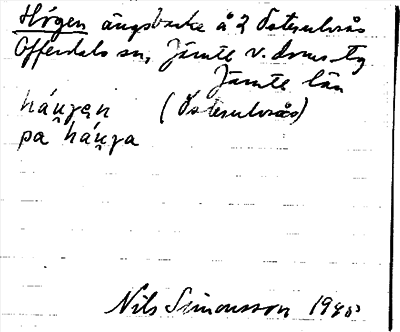 Högen ängsbacke å 2 Österulvsås
Offerdals sn, Jämte v. doms. tg
Jämte län
háu̯gen (Österulvsås)
pa háu̯ga
Nils Simonsson